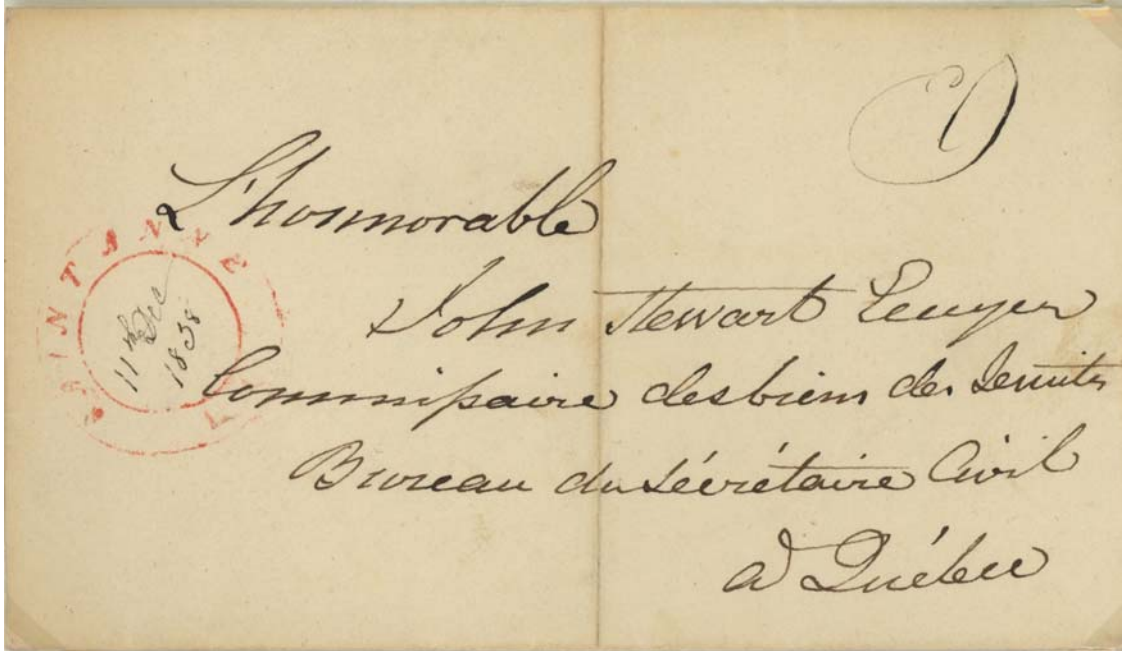 L'honnorable
John Stewart Ecuyer
Commissaire des biens des Jesuites
Bureau du Sécrétaire Civil
à Québec
SAINT ANNE
11th Dec
1838